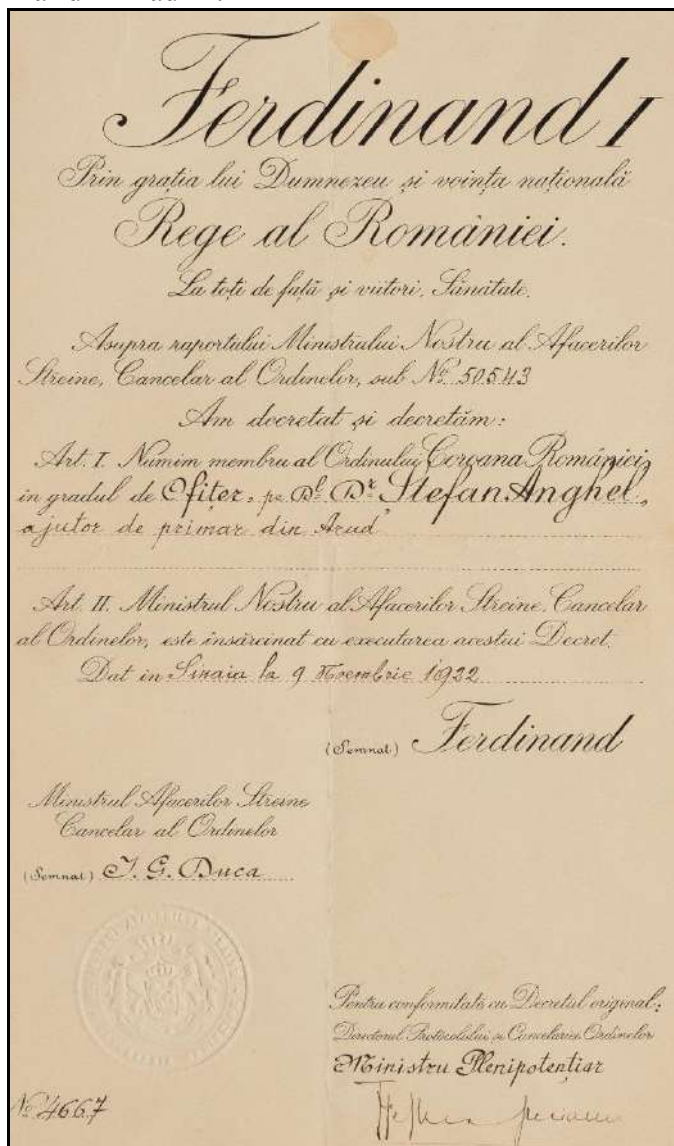 Ferdinand I
Prin grația lui Dumnezeu și voința națională
Rege al României.
La toți de față și viitori, Sănătate.
Asupra raportului Ministrului Nostru al Afacerilor
Streine, Cancelar al Ordinelor, sub No. 50543
Am decretat și decretăm:
Art. I. Numim membru al Ordinului „Coroana României”
in gradul de Ofițer, pe Dl. Dr. Stefan Anghel,
ajutor de primar din Arad
Art. II. Ministrul Nostru al Afacerilor Streine, Cancelar
al Ordinelor, este însărcinat cu executarea acestui Decret.
Dat in Sinaia la 9 Noembrie 1922
(Semnat) Ferdinand
Ministrul Afacerilor Streine
Cancelar al Ordinelor
(Semnat) I. G. Duca
Pentru conformitate cu Decretul original:
Directorul Protocolului și Cancelariei Ordinelor
Ministru Plenipotențiar
No. 4667